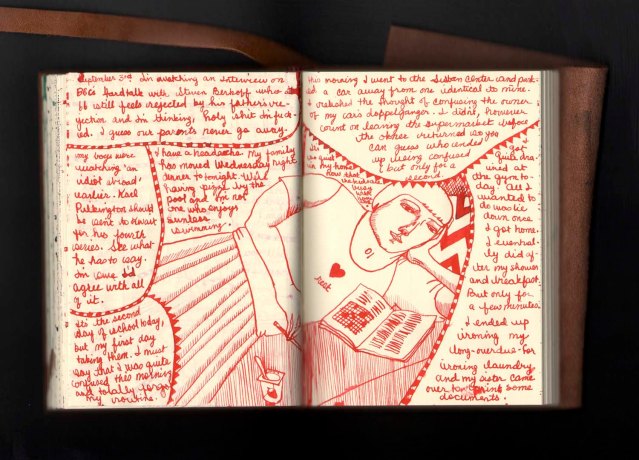 September 3rd I'm watching an interview on
BBC's Hardtalk with Steven Berkoff who at
66 still feels rejected by his father's re-
jection and I'm thinking, holy shit I'm fuck-
ed. I guess our parents never go away.
my boys were
watching 'an
idiot abroad'
earlier. Karl
Pilkington should
be sent to Kuwait
for his fourth
series. See what
he has to say.
I'm sure I'd
agree with all
of it.
It's the second
day of school today,
but my first day
taking them. I must
say that I was quite
confused this morning
and totally forgot
my routine.
I have a headache. My family
has moved Wednesday night
dinner to tonight. We'll
having pizza by the
pool and I'm not
one who enjoys
summer
swimming.
This morning I went to the Sultan Center and park-
ed a car away from one identical to mine.
I relished the thought of confusing the owner
of my car's doppelganger. I didn't, however
count on leaving the supermarket before
the other returned so you
can guess who ended
up being confused
but only for a
second.
It's
so quiet
in my home
now that
the kids are
busy
with
I got
quite drai-
ned at
the gym to-
day. All I
wanted to
do was lie
down once
I got home.
I eventual-
ly did af-
ter my shower
and breakfast.
But only for
a few minutes.
I ended up
ironing my
long-overdue-for
ironing laundry
and my sister came
over to print some
documents.